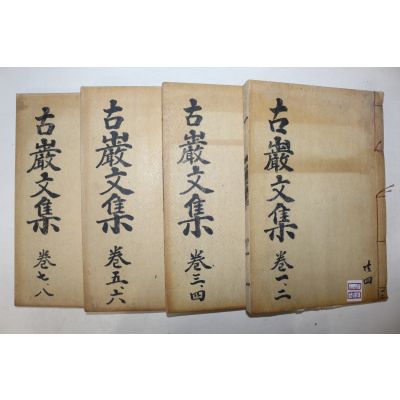 古巖文集
卷一、二
共四
古巖文集
卷三、四
古巖文集
卷五、六
古巖文集
卷七、八